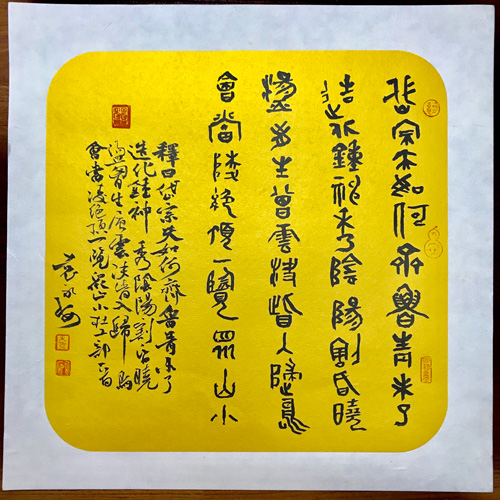 岱宗夫如何齊魯青未了
造化鍾神秀陰陽割昏曉
盪胸生曾雲決眥入歸鳥
會當陵絕頂一覽眾山小
釋曰岱宗夫如何齊魯青未了
造化鍾神秀陰陽割昏曉
盪胸生層雲決眥入歸鳥
會當凌絕頂一覽眾山小杜工部